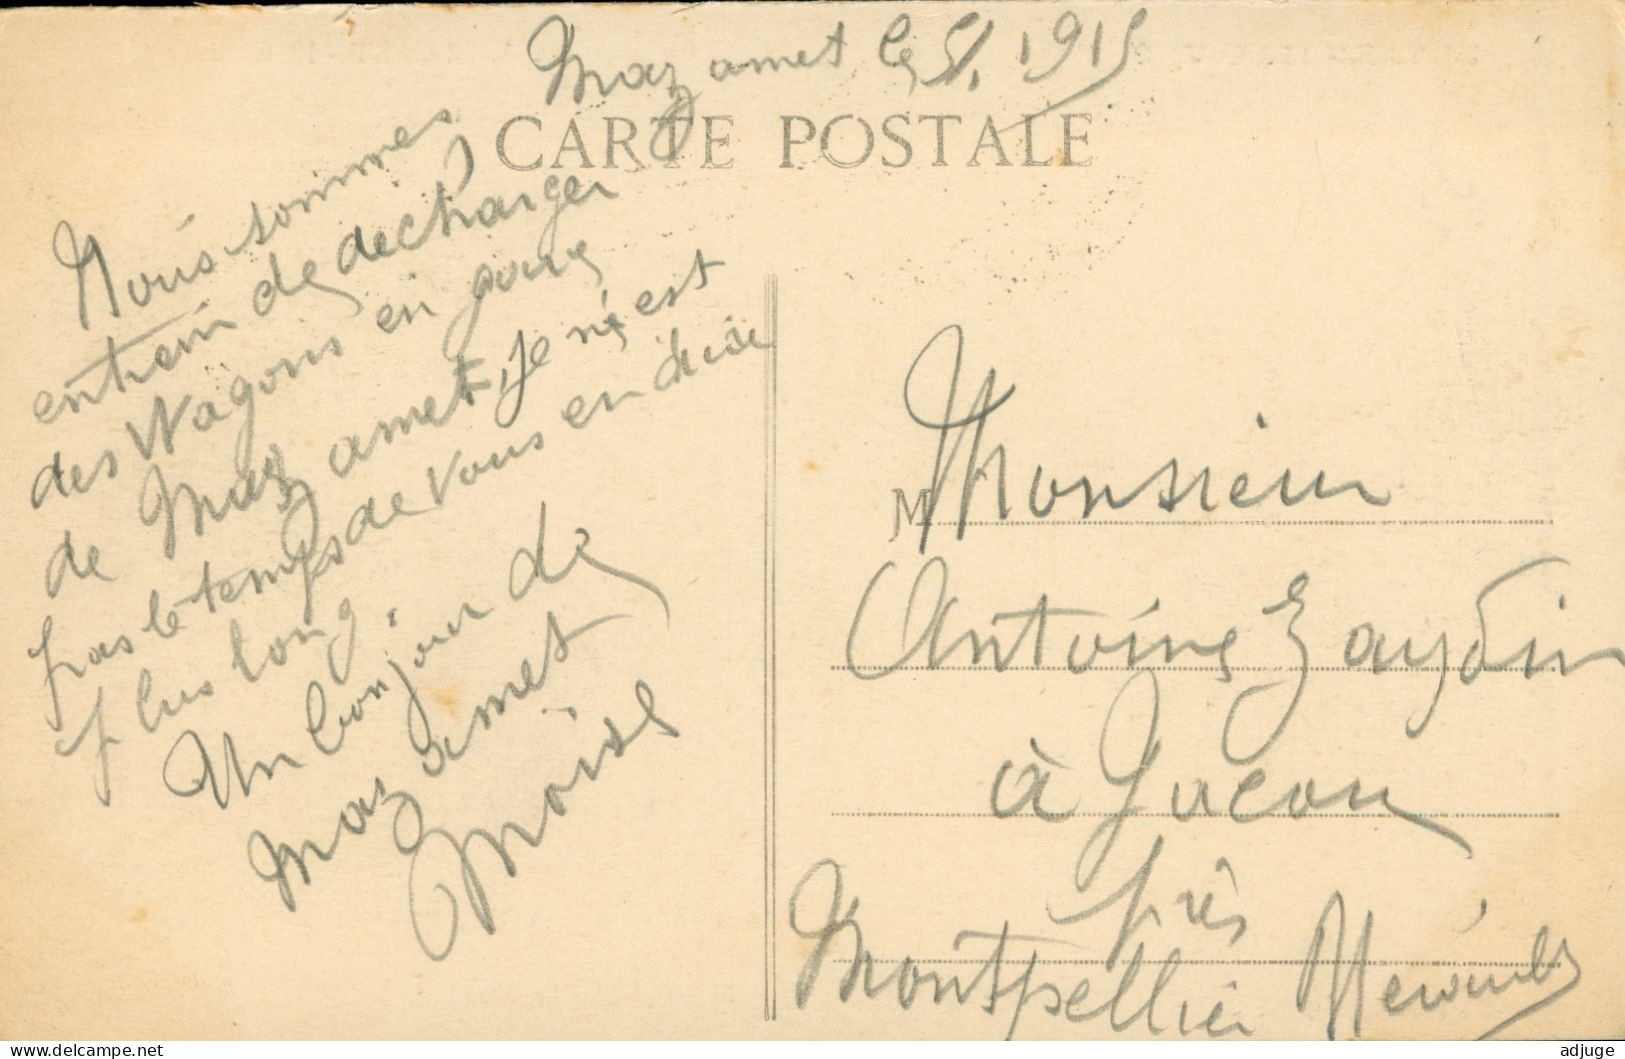 Mazamet le 1915
CARTE POSTALE
Nous sommes
entrein de decharger
des Wagons en gare
de Mazamet, je n'est
pas le temps de vous en dire
plus long.
Un bonjour de
Mazamet
Moïse
M Monsieur
Antoine
à Jacou
près
Montpellier Herault
delcampe.net
adjuge